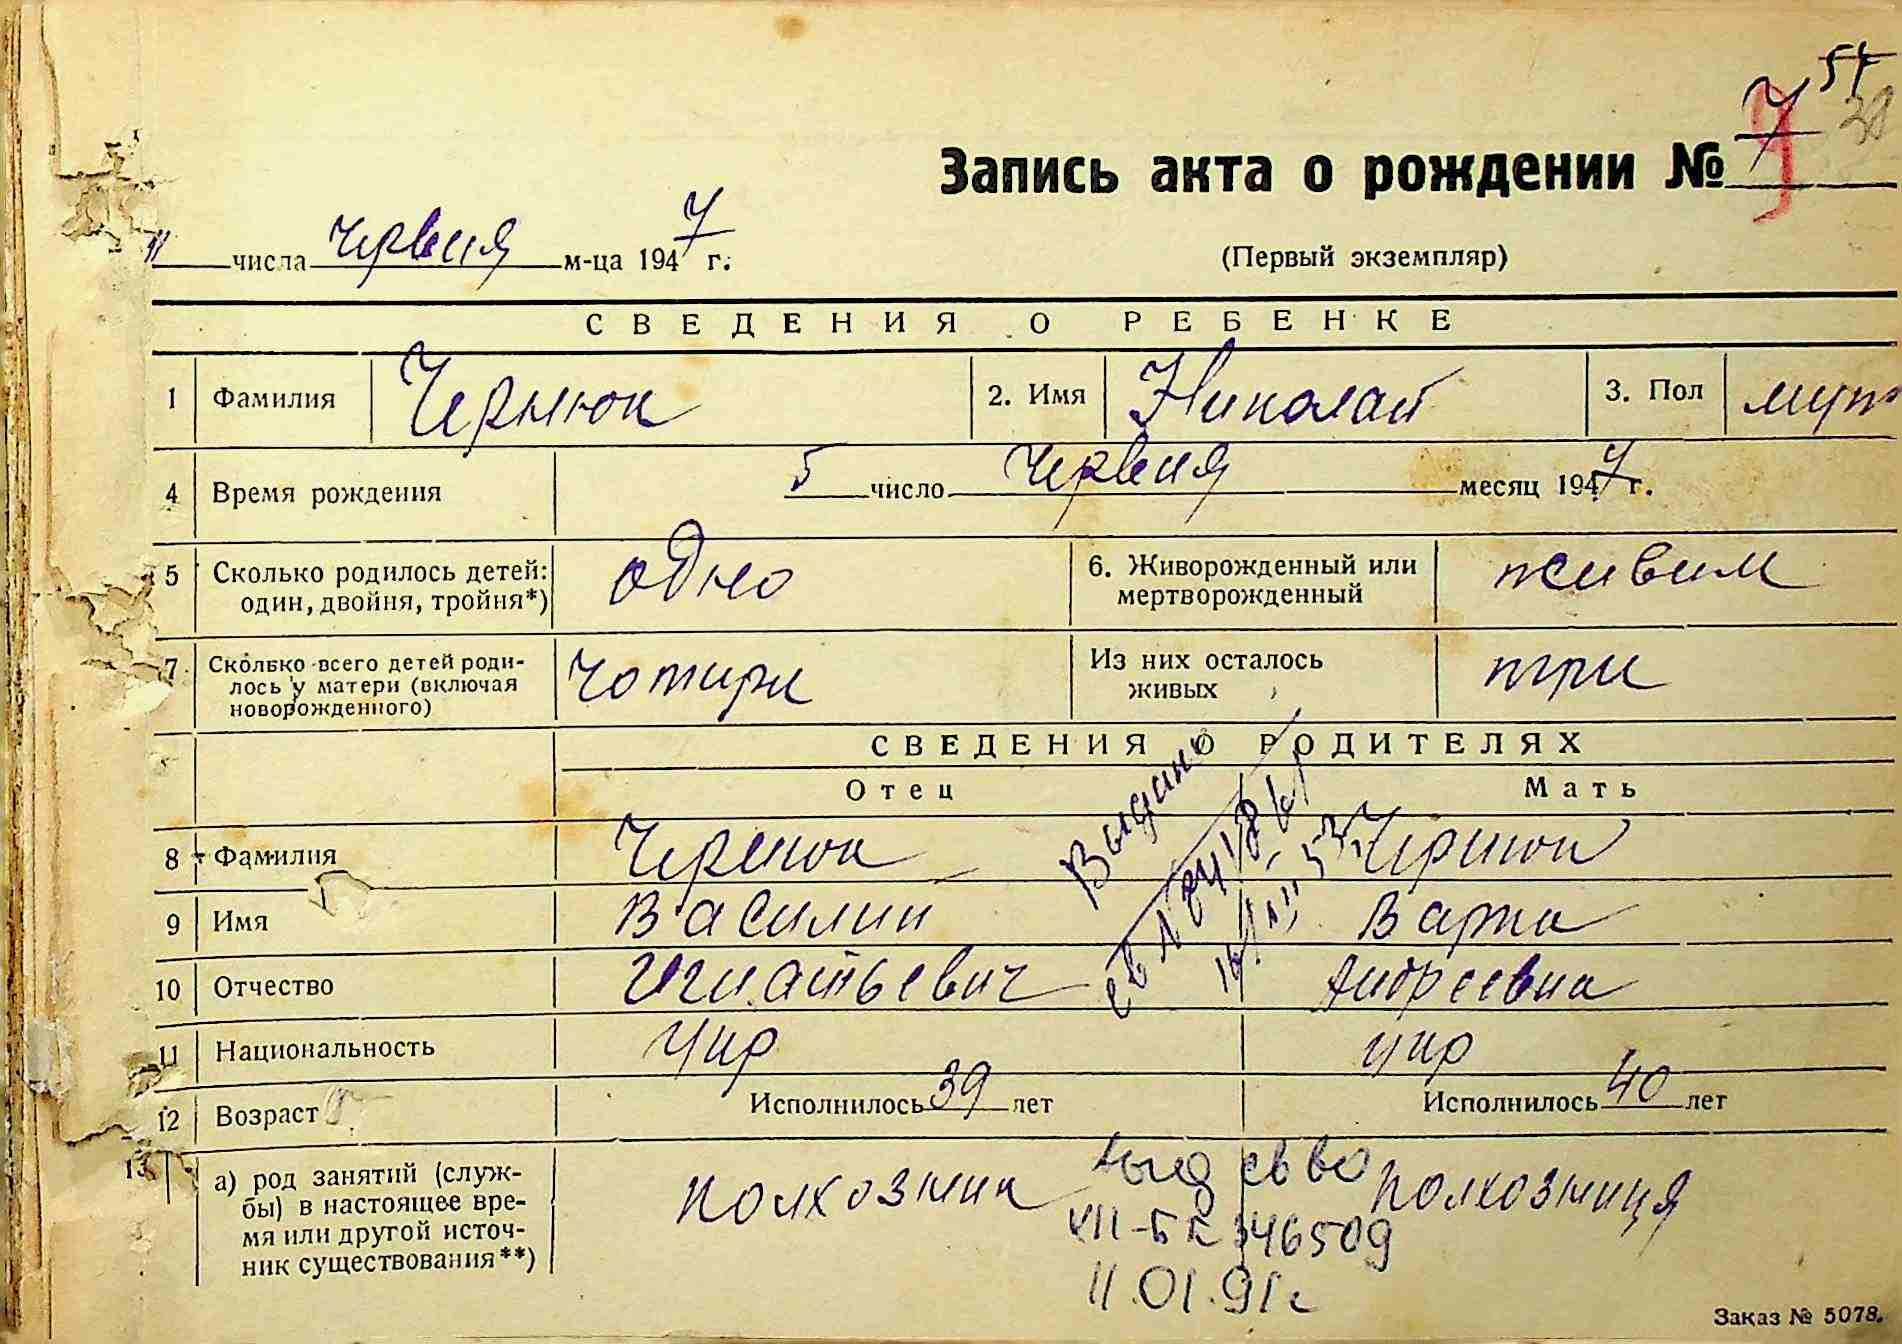 54
7 38
Запись акта о рождении №
11 числа червня м-ца 1947 г.
(Первый экземпляр)
СВЕДЕНИЯ О РЕБЕНКЕ
1 Фамилия Чернюк 2. Имя Николай 3. Пол муж
4 Время рождения 5 число червня месяц 1947 г.
5 Сколько родилось детей: один, двойня, тройня*) одно 6. Живорожденный или мертворожденный живим
7 Сколько всего детей родилось у матери (включая новорожденного) чотири Из них осталось живых три
СВЕДЕНИЯ О РОДИТЕЛЯХ
Отец Мать
8 Фамилия Чернюк Чернюк
9 Имя Василий Варка
10 Отчество Игнатьевич Андреевна
11 Национальность укр укр
12 Возраст Исполнилось 39 лет Исполнилось 40 лет
13 а) род занятий (службы) в настоящее время или другой источник существования**) колхозник колхозниця
Выдано
выд св во
XII-БК 346509
11.01.91г
Заказ № 5078.